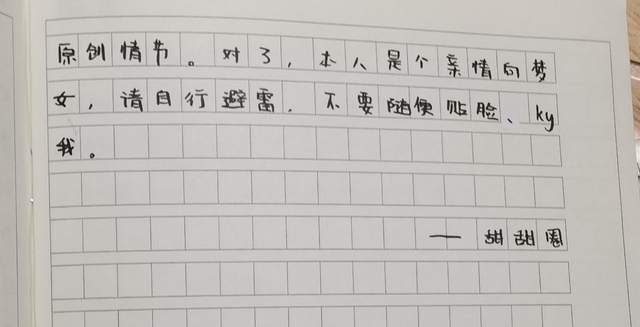 原创情节。对了，本人是个亲情向梦
女，请自行避雷，不要随便贴脸、ky
我。
——甜甜圈